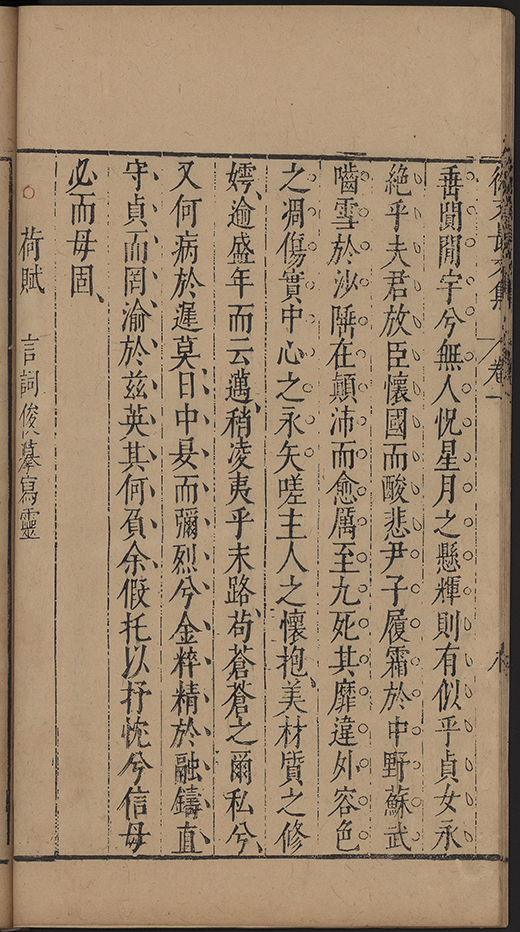 徐文長文集 卷一
垂闃閒宇兮無人怳星月之懸輝則有似乎貞女永
絶乎夫君放臣懷國而酸悲尹子履霜於中野蘇武
嚙雪於沙陲在顛沛而愈厲至九死其靡違外容色
之凋傷實中心之永矢嗟主人之懷抱美材質之修
嫮逾盛年而云邁稍凌夷乎末路苟蒼蒼之爾私兮
又何病於遲莫日中昃而彌烈兮金粹精於融鑄直
守貞而罔渝於茲英其何負余假托以抒忱兮信毋
必而毋固
荷賦 言詞俊𫟪摹寫靈